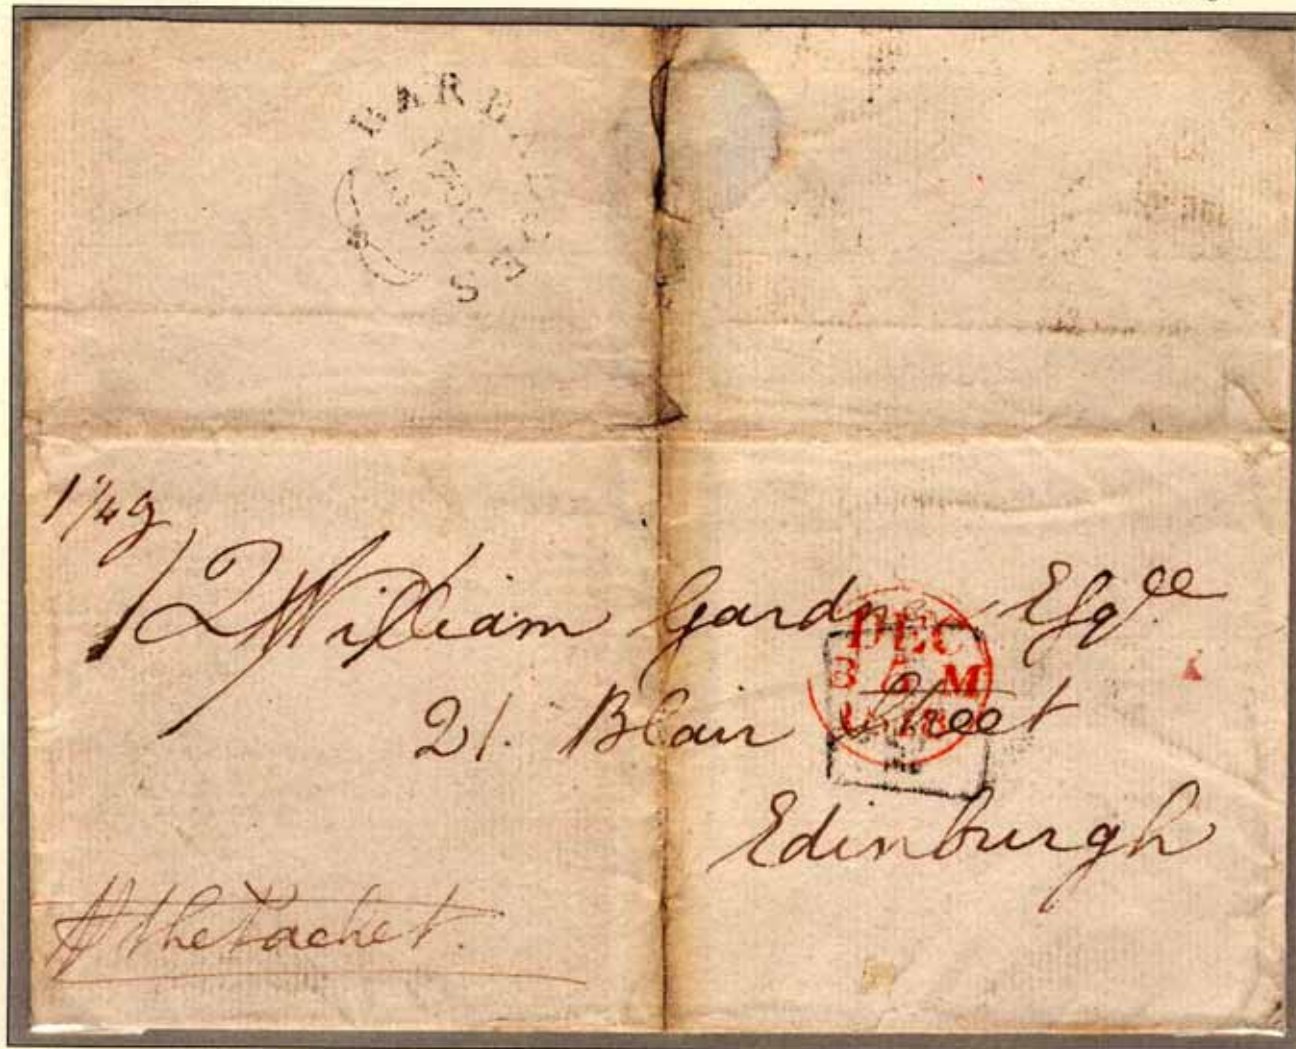 BARBADOES
1/4g
1/2 William Gardner Esq.re
DEC
B 5 M
21. Blair Street
Edinburgh
the Packet.